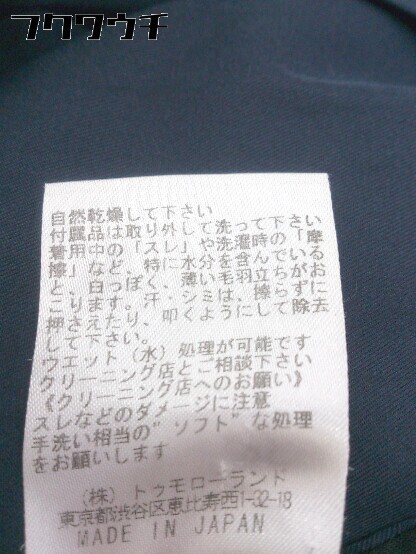 フクワウチ
自然乾燥して下さい
付属品は取り外して洗って下さい
着用中の「スレ」や洗濯時の「摩
擦」など、特に水分を含んでいる
と、白っぽく、薄い毛羽立ちがお
こります。汗・シミは、擦らずに
押さえたり、叩くようにして除去
して下さい。
ウエット（水）処理が可能です
クリーニング店とご相談下さい
《クリーニング店へのお願い》
スレなどのダメージに注意
手洗い相当の”ソフト”な処理
をお願いします
（株）トゥモローランド
東京都渋谷区恵比寿西1-32-18
MADE IN JAPAN